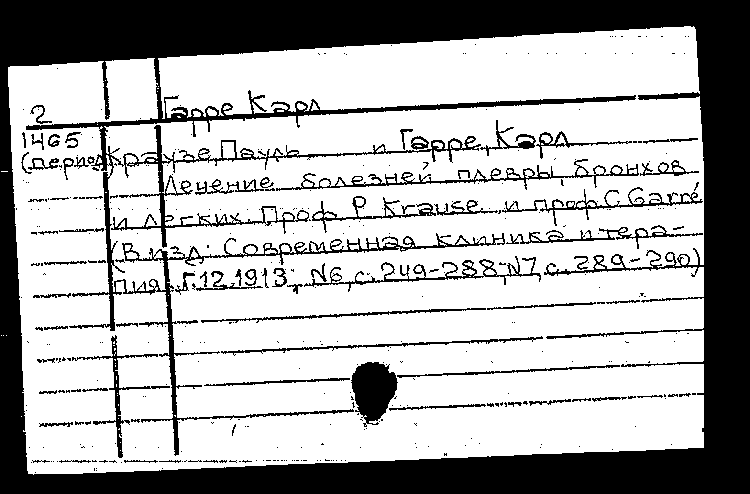 2 Гарре Карл
1465
(период) Краузе, Пауль и Гарре, Карл
Лечение болезней плевры, бронхов
и легких. Проф. P. Krause. и проф. C. Garré
(В изд: Современная клиника и тера-
пия. Г.12.1913; N6, с. 249-288; N7, с. 289-290)